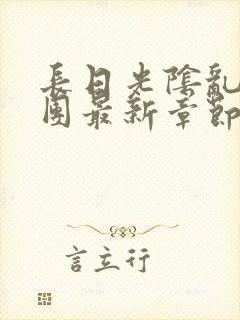 長日光陰亂
團最新章節
言立行